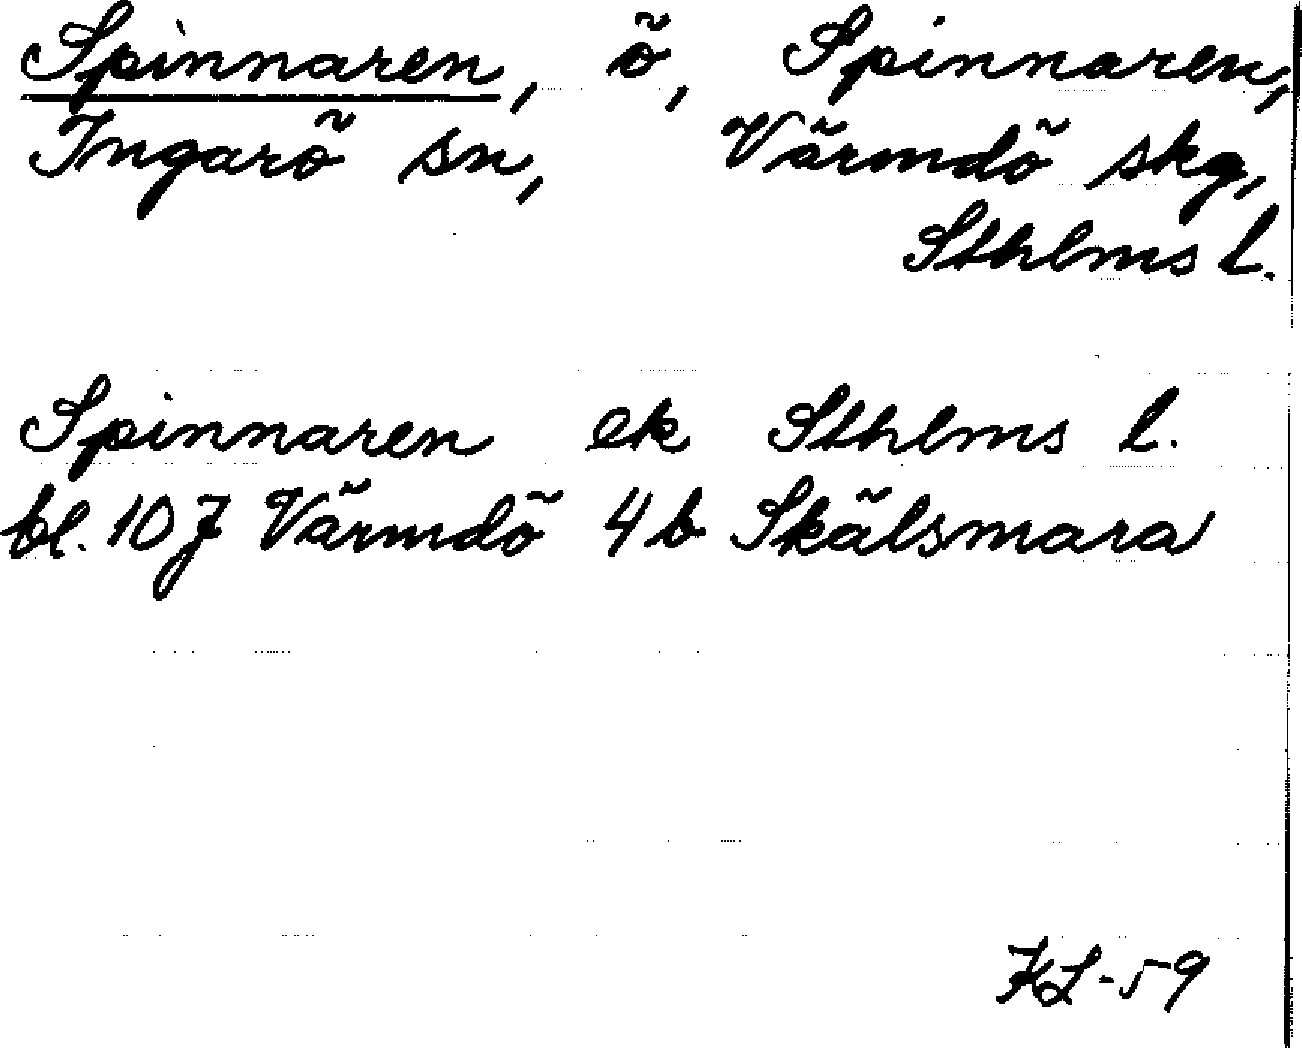 Spinnaren, ö, Spinnaren,
Ingarö sn, Värmdö skg,
Sthlms l.
Spinnaren ek Sthlms l.
bl. 10 J Värmdö 4 b Skälsmara
KL-59